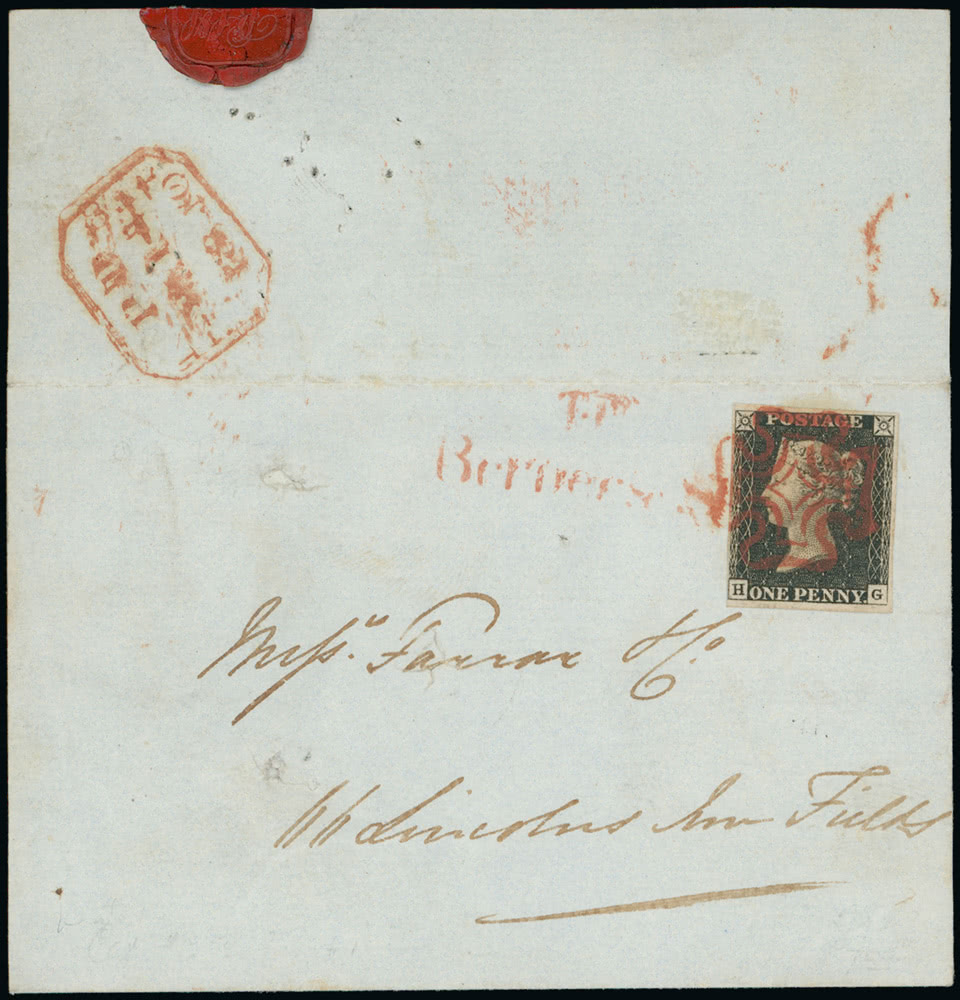 T.P
Berners
POSTAGE
H ONE PENNY. G
Messrs. Farrar & Co.
66 Lincolns Inn Fields